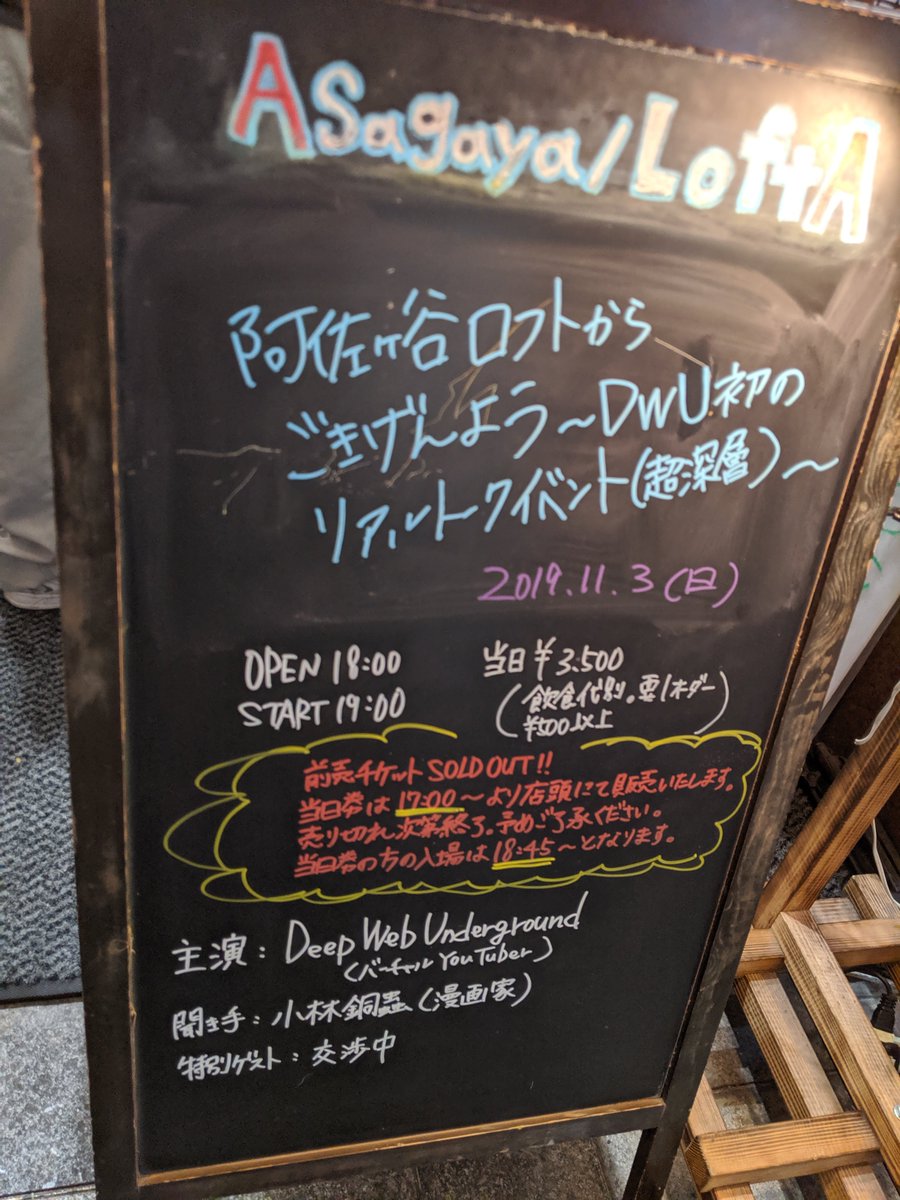 Asagaya/LoftA
阿佐ヶ谷ロフトから
ごきげんよう～DWU初の
リアルトークイベント(超深層)～
2019.11.3(日)
OPEN 18:00
START 19:00
当日¥3,500
(飲食代別。要1オーダー
¥500以上)
前売チケットSOLD OUT!!
当日券は17:00～より店頭にて販売いたします。
売り切れ次第終了。予めご了承ください。
当日券の方の入場は18:45～となります。
主演：Deep Web Underground
(バーチャル YouTuber)
聞き手：小林銅蟲(漫画家)
特別ゲスト：交渉中